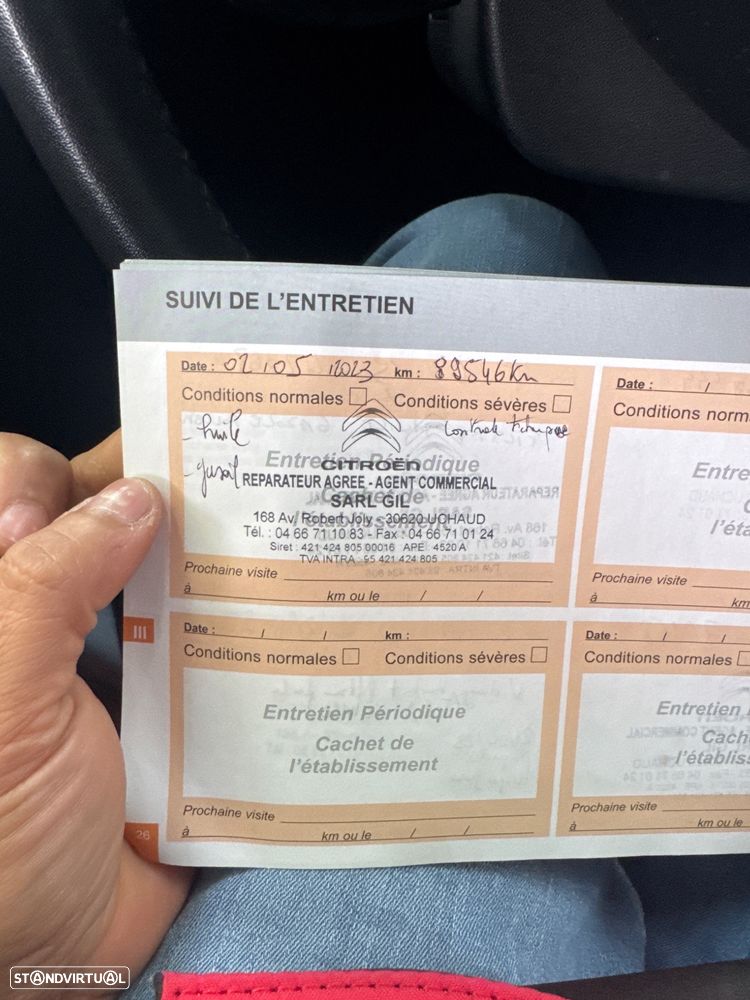 SUIVI DE L'ENTRETIEN
Date : 02 / 05 / 2023 km : 89546 Km
Conditions normales Conditions sévères
- huile
- Controle
- gusoil
Entretien Périodique
CITROËN
REPARATEUR AGREE - AGENT COMMERCIAL
Cachet de
SARL GIL
l'établissement
168 Av. Robert Joly - 30620 UCHAUD
Tél. : 04 66 71 10 83 - Fax : 04 66 71 01 24
Siret : 421 424 805 00016 APE 4520 A
TVA INTRA - 95 421 424 805
Prochaine visite
à km ou le / /
Date : /
Conditions norm
Entre
C
l'éta
Prochaine visite
à km
III
Date : / / km :
Conditions normales Conditions sévères
Entretien Périodique
Cachet de
l'établissement
Prochaine visite
à km ou le / /
Date : / /
Conditions normales
Entretien
Cach
l'établiss
Prochaine visite
à km ou le /
26
STANDVIRTUAL